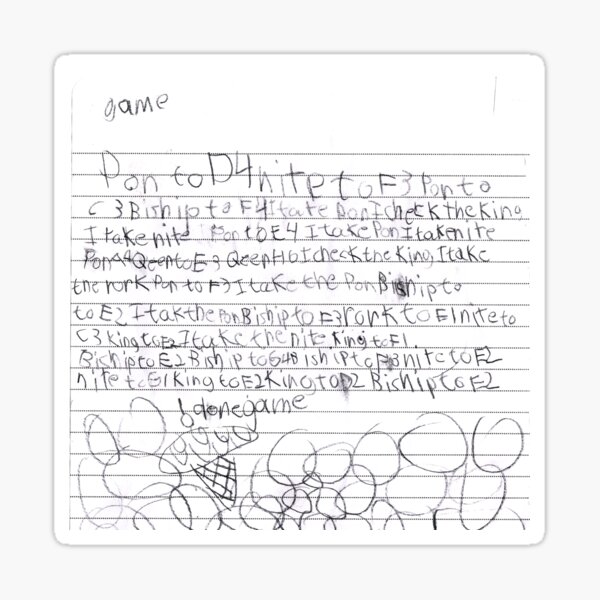 game
Pon to D4 nitp to F3 Pon to
C3 Biship to F4 I take Pon I check the King
I take nite Pon to E4 I take Pon I take nite
Pon A4 Qeen to E3 Qeen H6 I check the King I take
the rork Pon to F3 I take the Pon Biship to
to E2 I tak the Pon Biship to F3 rork to E1 nite to
C3 king to E2 I take the nite King to F1.
Biship to E2 Biship to G4 Biship to F3 nite to E2
nite to G1 King to E2 King to D2 Biship to E2
! done game